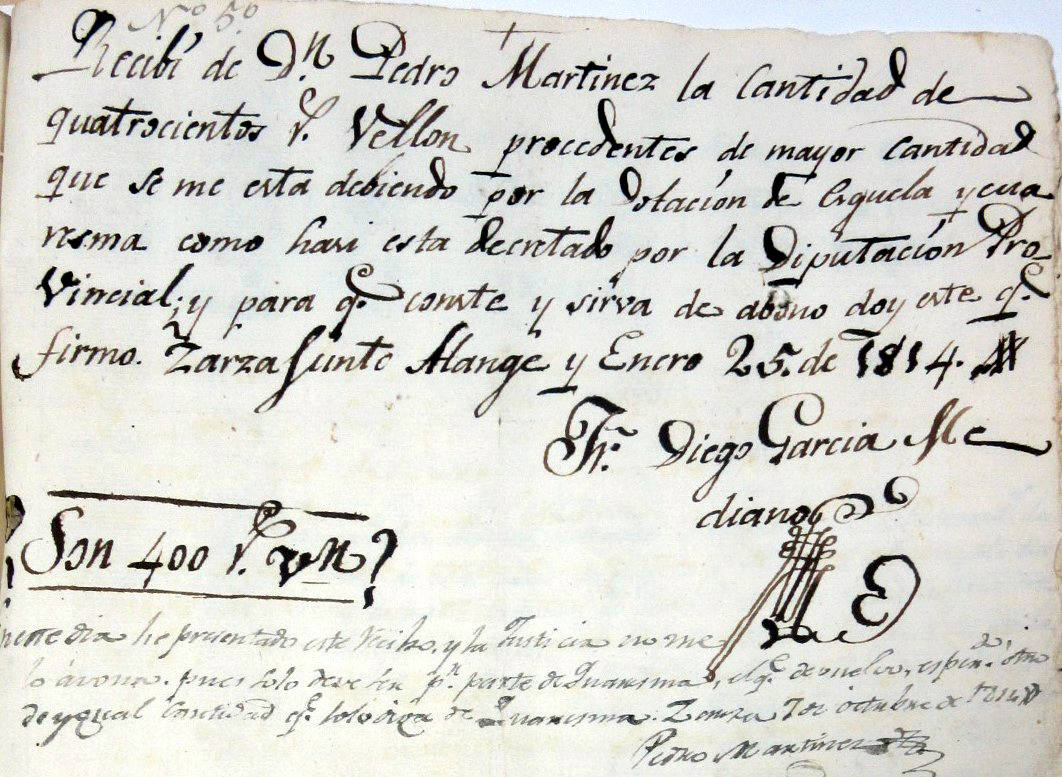 Nº 5º
Recibí de Dn. Pedro Martinez la Cantidad de
quatrocientos r. Vellon procedentes de mayor Cantidad
que se me esta debiendo por la Dotación de Esquela y cua
resma como hasi esta decretado por la Diputación Pro
Vincial; y para q.e conste y sirva de abono doy este q.e
firmo. Zarza Junto Alange y Enero 25. de 1814.
Fr. Diego Garcia Me
diano
Son 400 r. vn
este dia he presentado este recibo, y la Justicia no me
lo avona pues solo deve ser pr. parte de Quaresma, el q.e devuelvo, otro
de ygual Cantidad q.e solo diga de Quaresma. Zarza 7 de octubre de 1814
Pedro Martinez